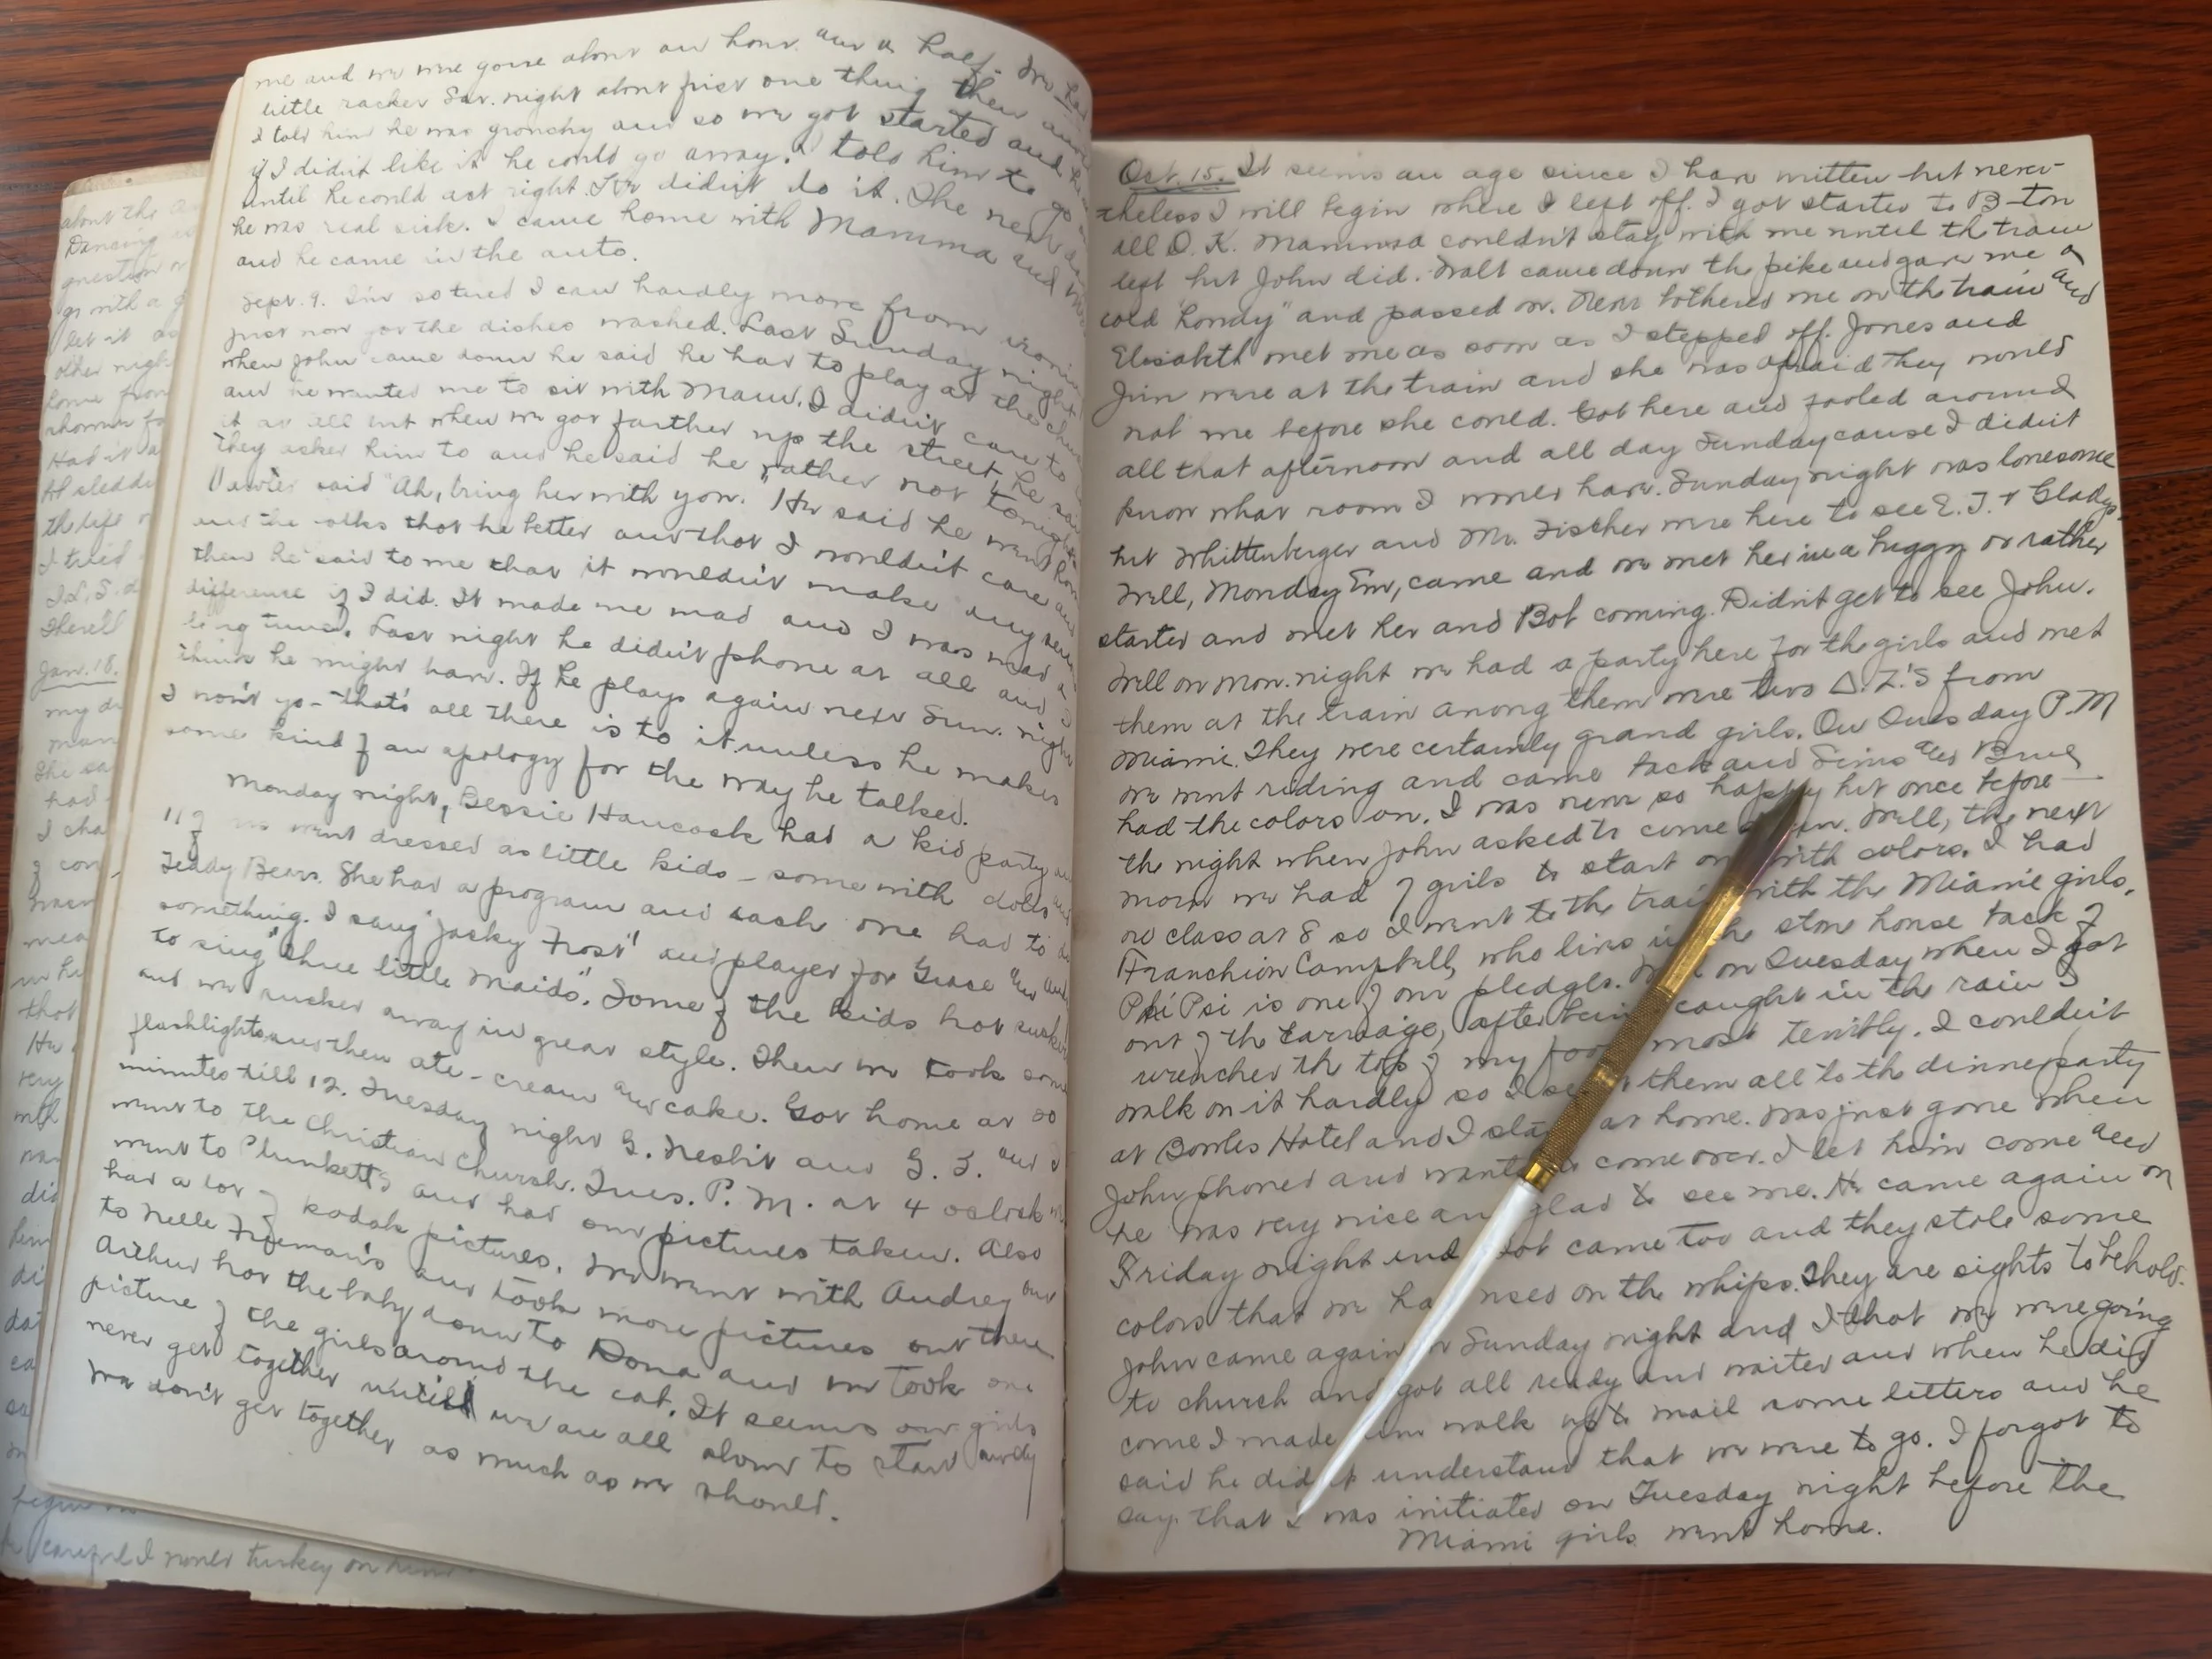 me and we were gone about an hour and a half. We had
little racket Sat. night about first one thing then
I told him he was grouchy and so we got started and he
if I didn't like it he could go away. I told him to go
until he could act right. He didn't do it. The next
he was real sick. I came home with Mamma and
and he came in the auto.
Sept. 9. I'm so tired I can hardly move from ironing
just now got the dishes washed. Last Sunday night
when John came down he said he had to play at the church
and he wanted me to sit with Maud. I didn't care to
it at all but when we got farther up the street, he said
they asked him to and he said he rather not tonight
said "Ah, bring her with you." He said he went
and the folks thot he better and thot I wouldn't care and
then he said to me that it wouldn't make any
difference if I did. It made me mad and I was mad a
long time. Last night he didn't phone at all and I
think he might have. If he plays again next Sun. night
I won't go - that's all there is to it unless he makes
some kind of an apology for the way he talked.
Monday night, Bessie Hancock had a kid party
11 of us went dressed as little kids - some with dolls and
Teddy Bears. She had a program and each one had to do
something. I sang "Jacky Frost" and played for Grace and
to sing "Three little Maids". Some of the kids had
and we rushed away in great style. Then we took some
flashlights and then ate - cream and cake. Got home at 20
minutes till 12. Tuesday night G. Nesbit and G. F. and I
went to the Christian Church. Tues. P. M. at 4 oclock
went to Plunketts and had our pictures taken. Also
had a lot of kodak pictures. We went with Audrey and
to Nelle Freeman's and took more pictures out there
Arthur had the baby down to Dona and we took one
picture of the girls around the cat. It seems our girls
never get together untill we are all about to start away
We don't get together as much as we should.
about the
Dancing
question
go with a
let it
other night
home from
Had it
the life
I tried
Jan. 18.
my
had
I
that
He
very
him
careful I would turkey on him
Oct. 15. It seems an age since I have written but never-
theless I will begin where I left off. I got started to B-ton
all O. K. Mamma couldn't stay with me until the train
left but John did. Walt came down the pike and gave me a
cold "howdy" and passed on. Neva bothered me on the train and
Elizabeth met me as soon as I stepped off. Jones and
Jim were at the train and she was afraid they would
nab me before she could. Got here and fooled around
all that afternoon and all day Sunday cause I didn't
know what room I would have. Sunday night was lonesome
but Whittenberger and Mr. Fischer were here to see E. T. & Gladys.
Well, Monday Em, came and we met her in a buggy or rather
started and met her and Bob coming. Didn't get to see John.
Well on Mon. night we had a party here for the girls and met
them at the train among them were two Δ. Z.'s from
Miami. They were certainly grand girls. On Tuesday P. M
we went riding and came back and Sims and Brue
had the colors on. I was never so happy but once before —
the night when John asked to come again. Well, the next
morn we had 7 girls to start out with colors. I had
no class at 8 so I went to the train with the Miami girls.
Franchion Campbell, who lives in the stone house back of
Phi Psi is one of our pledges. Well on Tuesday when I got
out of the carriage, after being caught in the rain I
wrenched the top of my foot most terribly. I couldn't
walk on it hardly so I sent them all to the dinner party
at Bowles Hotel and I stayed at home. Was just gone when
John phoned and wanted to come over. I let him come and
he was very nice and glad to see me. He came again on
Friday night and Bob came too and they stole some
colors that we had used on the whips. They are sights to behold.
John came again on Sunday night and I thot we were going
to church and got all ready and waited and when he did
come I made him walk up to mail some letters and he
said he didn't understand that we were to go. I forgot to
say that I was initiated on Tuesday night before the
Miami girls went home.